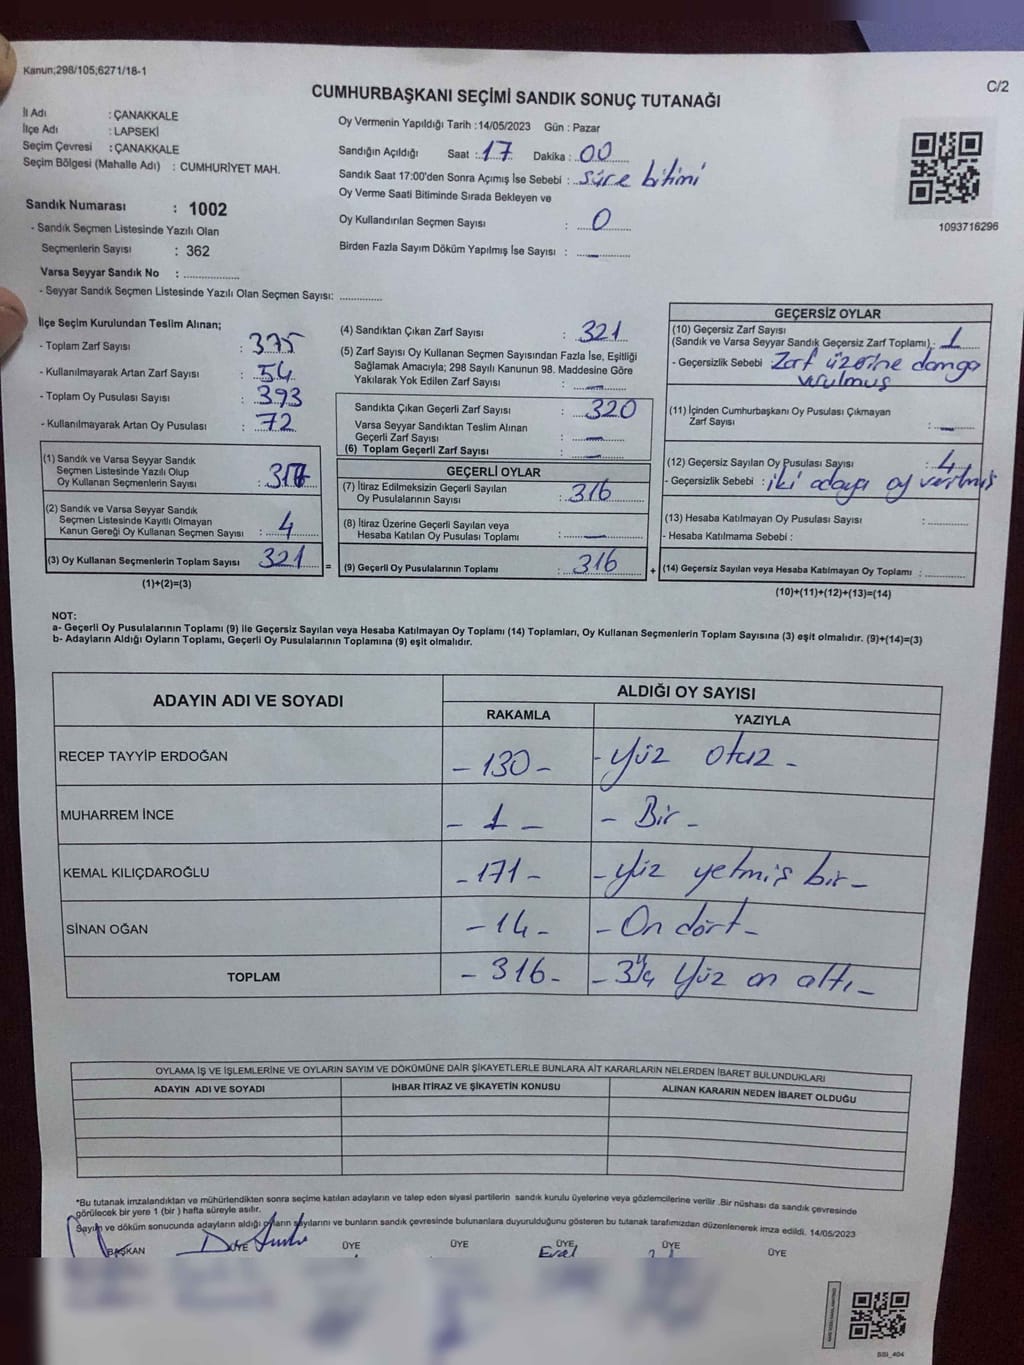 Kanun;298/105;6271/18-1
C/2
CUMHURBAŞKANI SEÇİMİ SANDIK SONUÇ TUTANAĞI
İl Adı : ÇANAKKALE
İlçe Adı : LAPSEKİ
Seçim Çevresi : ÇANAKKALE
Seçim Bölgesi (Mahalle Adı) : CUMHURİYET MAH.
Sandık Numarası : 1002
- Sandık Seçmen Listesinde Yazılı Olan
Seçmenlerin Sayısı : 362
Varsa Seyyar Sandık No : ................
- Seyyar Sandık Seçmen Listesinde Yazılı Olan Seçmen Sayısı: ............
Oy Vermenin Yapıldığı Tarih :14/05/2023 Gün : Pazar
Sandığın Açıldığı Saat : 17 Dakika : 00
Sandık Saat 17:00'den Sonra Açımış İse Sebebi : süre bitimi
Oy Verme Saati Bitiminde Sırada Bekleyen ve
Oy Kullandırılan Seçmen Sayısı : 0
Birden Fazla Sayım Döküm Yapılmış İse Sayısı : —
1093716296
İlçe Seçim Kurulundan Teslim Alınan;
- Toplam Zarf Sayısı : 375
- Kullanılmayarak Artan Zarf Sayısı : 54
- Toplam Oy Pusulası Sayısı : 393
- Kullanılmayarak Artan Oy Pusulası : 72
(1) Sandık ve Varsa Seyyar Sandık
Seçmen Listesinde Yazılı Olup
Oy Kullanan Seçmenlerin Sayısı : 317
(2) Sandık ve Varsa Seyyar Sandık
Seçmen Listesinde Kayıtlı Olmayan
Kanun Gereği Oy Kullanan Seçmen Sayısı : 4
(3) Oy Kullanan Seçmenlerin Toplam Sayısı 321
(1)+(2)=(3)
=
(4) Sandıktan Çıkan Zarf Sayısı : 321
(5) Zarf Sayısı Oy Kullanan Seçmen Sayısından Fazla İse, Eşitliği
Sağlamak Amacıyla; 298 Sayılı Kanunun 98. Maddesine Göre
Yakılarak Yok Edilen Zarf Sayısı : —
Sandıkta Çıkan Geçerli Zarf Sayısı : 320
Varsa Seyyar Sandıktan Teslim Alınan
Geçerli Zarf Sayısı : —
(6) Toplam Geçerli Zarf Sayısı : —
GEÇERLİ OYLAR
(7) İtiraz Edilmeksizin Geçerli Sayılan
Oy Pusulalarının Sayısı : 316
(8) İtiraz Üzerine Geçerli Sayılan veya
Hesaba Katılan Oy Pusulası Toplamı : —
(9) Geçerli Oy Pusulalarının Toplamı : 316
+
GEÇERSİZ OYLAR
(10) Geçersiz Zarf Sayısı
(Sandık ve Varsa Seyyar Sandık Geçersiz Zarf Toplamı) : 1
- Geçersizlik Sebebi : Zarf üzerine damga
vurulmuş
(11) İçinden Cumhurbaşkanı Oy Pusulası Çıkmayan
Zarf Sayısı : —
(12) Geçersiz Sayılan Oy Pusulası Sayısı : 4
- Geçersizlik Sebebi : iki adaya oy verilmiş
(13) Hesaba Katılmayan Oy Pusulası Sayısı : ............
- Hesaba Katılmama Sebebi :
(14) Geçersiz Sayılan veya Hesaba Katılmayan Oy Toplamı : ............
(10)+(11)+(12)+(13)=(14)
NOT:
a- Geçerli Oy Pusulalarının Toplamı (9) İle Geçersiz Sayılan veya Hesaba Katılmayan Oy Toplamı (14) Toplamları, Oy Kullanan Seçmenlerin Toplam Sayısına (3) eşit olmalıdır. (9)+(14)=(3)
b- Adayların Aldığı Oyların Toplamı, Geçerli Oy Pusulalarının Toplamına (9) eşit olmalıdır.
ADAYIN ADI VE SOYADI
ALDIĞI OY SAYISI
RAKAMLA YAZIYLA
RECEP TAYYİP ERDOĞAN - 130 - - Yüz otuz -
MUHARREM İNCE - 1 - - Bir -
KEMAL KILIÇDAROĞLU - 171 - - yüz yetmiş bir -
SİNAN OĞAN - 14 - - On dört -
TOPLAM - 316 - - Üç Yüz on altı -
OYLAMA İŞ VE İŞLEMLERİNE VE OYLARIN SAYIM VE DÖKÜMÜNE DAİR ŞİKAYETLERLE BUNLARA AİT KARARLARIN NELERDEN İBARET BULUNDUKLARI
ADAYIN ADI VE SOYADI İHBAR İTİRAZ VE ŞİKAYETİN KONUSU ALINAN KARARIN NEDEN İBARET OLDUĞU
*Bu tutanak imzalandıktan ve mühürlendikten sonra seçime katılan adayların ve talep eden siyasi partilerin sandık kurulu üyelerine veya gözlemcilerine verilir .Bir nüshası da sandık çevresinde
görülecek bir yere 1 (bir ) hafta süreyle asılır.
Sayım ve döküm sonucunda adayların aldığı oyların sayılarını ve bunların sandık çevresinde bulunanlara duyurulduğunu gösteren bu tutanak tarafımızdan düzenlenerek imza edildi. 14/05/2023
BAŞKAN ÜYE ÜYE ÜYE ÜYE ÜYE ÜYE
SSI_404